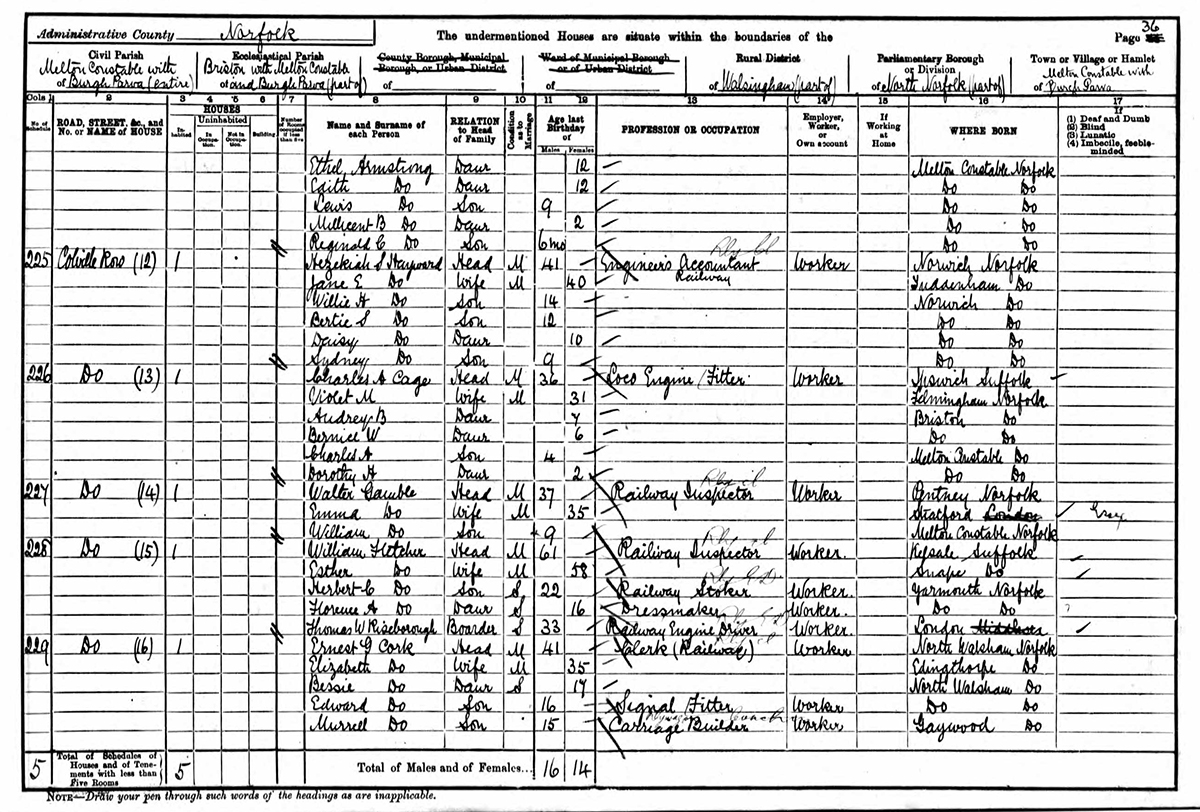 Administrative County Norfolk The undermentioned Houses are situate within the boundaries of the Page 36
Civil Parish Ecclesiastical Parish County Borough, Municipal Borough, or Urban District Ward of Municipal Borough or of Urban District Rural District Parliamentary Borough or Division Town or Village or Hamlet
of Melton Constable with Burgh Parva (entire) of Briston with Melton Constable and Burgh Parva (part of) of of of Walsingham (part of) of North Norfolk (part of) of Melton Constable with Burgh Parva
Cols 1 2 3 4 5 6 7 8 9 10 11 12 13 14 15 16 17
No. of Schedule ROAD, STREET, &c., and No. or NAME of HOUSE HOUSES Inhabited Uninhabited In Occupation Not in Occupation Building Number of Rooms occupied if less than five Name and Surname of each Person RELATION to Head of Family Condition as to Marriage Age last Birthday of Males Females PROFESSION OR OCCUPATION Employer, Worker, or Own account If Working at Home WHERE BORN If (1) Deaf and Dumb (2) Blind (3) Lunatic (4) Imbecile, feeble-minded
Ethel Armstrong Daur 12 Melton Constable Norfolk
Edith Do Daur 12 Do Do
Lewis Do Son 9 Do Do
Millicent B Do Daur 2 Do Do
Reginald C Do Son 6 mo Do Do
225 Colville Row (12) 1 Hezekiah S Hayward Head M 41 Engineer's Accountant Railway Worker Norwich Norfolk
Jane E Do Wife M 40 Tuddenham Do
Willie H Do Son 14 Norwich Do
Bertie S Do Son 12 Do Do
Daisy Do Daur 10 Do Do
Sydney Do Son 9 Do Do
226 Do (13) 1 Charles A Cage Head M 36 Loco Engine Fitter Worker Ipswich Suffolk
Violet M Wife M 31 Felmingham Norfolk
Audrey B Daur 7 Briston Do
Bernice W Daur 6 Do Do
Charles A Son 4 Melton Constable Do
Dorothy H Daur 2 Do Do
227 Do (14) 1 Walter Gamble Head M 37 Railway Inspector Worker Pentney Norfolk
Emma Do Wife M 35 Stratford London
William Do Son 9 Melton Constable Norfolk
228 Do (15) 1 William Fletcher Head M 61 Railway Inspector Worker. Kelsale Suffolk
Esther Do Wife M 58 Snape Do
Herbert C Do Son S 22 Railway Stoker Worker. Yarmouth Norfolk
Florence A Do Daur S 16 Dressmaker Worker. Do Do
Thomas W Riseborough Boarder S 33 Railway Engine Driver Worker. London Middlesex
229 Do (16) 1 Ernest G Cork Head M 41 Clerk (Railway) Worker North Walsham Norfolk
Elizabeth Do Wife M 35 Edingthorpe Do
Bessie Do Daur S 17 North Walsham Do
Edward Do Son 16 Signal Fitter Worker Do Do
Murrell Do Son 15 Carriage Builder Worker Gaywood Do
5 Total of Schedules of Houses and of Tenements with less than Five Rooms 5 Total of Males and of Females... 16 14
NOTE—Draw your pen through such words of the headings as are inapplicable.